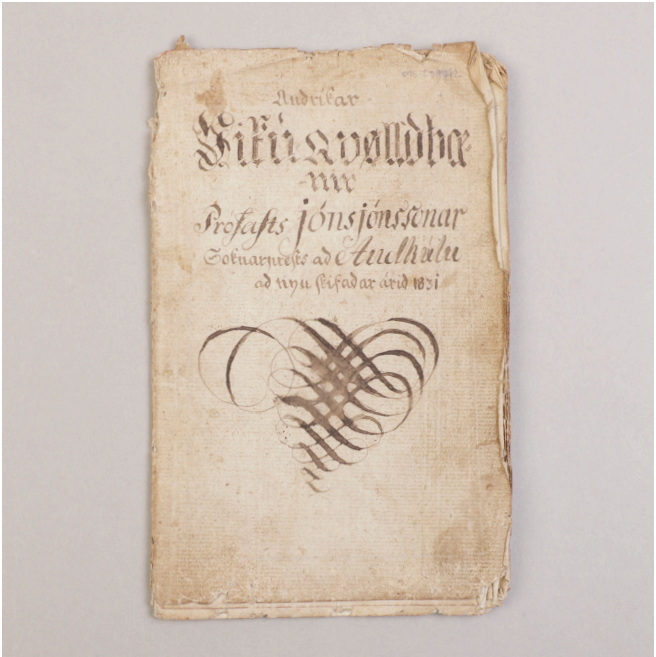 Andrikar
Viku Qvølldbæ-
-nir
Profasts jóns jónssonar
Soknarprests ad Audkulu
ad nyu skifadar árid 1831